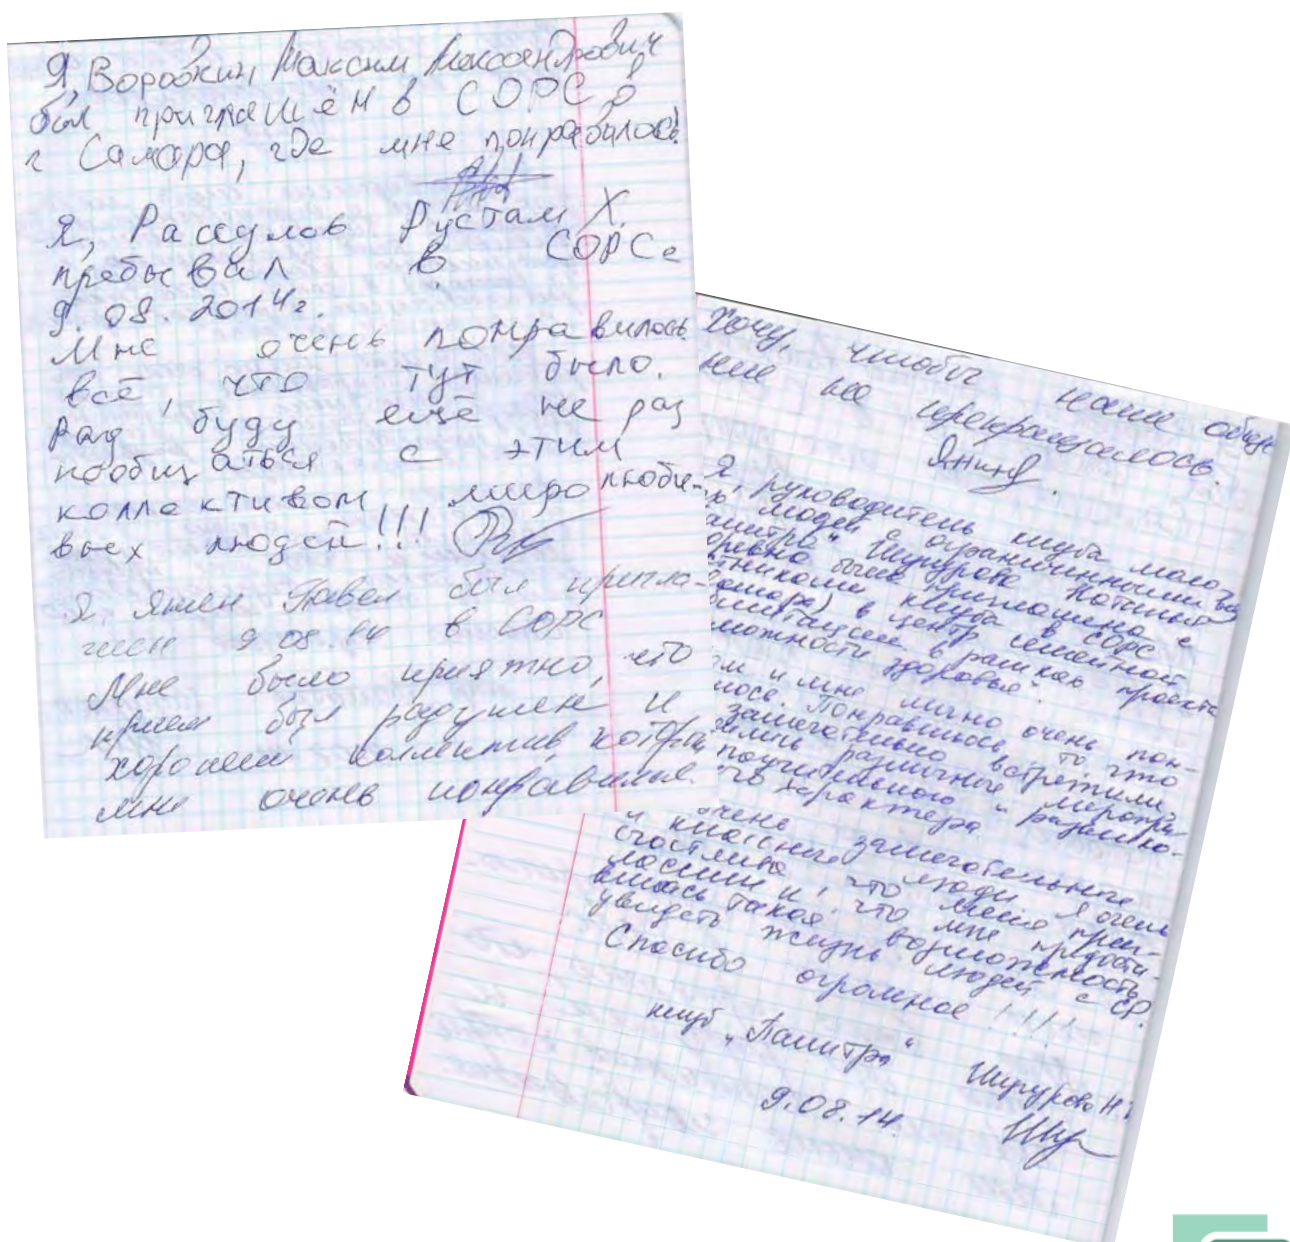 Я, Воробкин Максим Александрович
был приглашён в СОРС в
г Самара, где мне понравилось.
Я, Рассулов Рустам Х.
пребывал в СОРСе
9. 08. 2014г.
Мне очень понравилось
всё, что тут было.
Рад буду ещё не раз
пообщаться с этим
коллективом миролюби-
вых людей!!!
Я Павел был пригла-
шен 9 08.14 в СОРС
Мне было приятно, что
прием был радушен и
хороший коллектив, который
мне очень понравился.
Хочу, чтобы наше обще
ние не прекращалось.
Я, руководитель клуба моло-
людей с ограниченными воз
"
была приглашена с
клуба в СОРС
в центр семейной
в рамках проекта
можности здоровья".
м и мне лично очень пон-
лось. Понравилось то что
замечательно встретили,
различные меропри
поучительного и развлека-
го характера.
очень замечательные
и классные люди. Я очень
счастлива, что меня приг-
ласили и что мне предоста-
вилась такая возможность
увидеть жизнь людей с СР.
Спасибо огромное !!!!
клуб "Палитра" Н.
9.08.14.